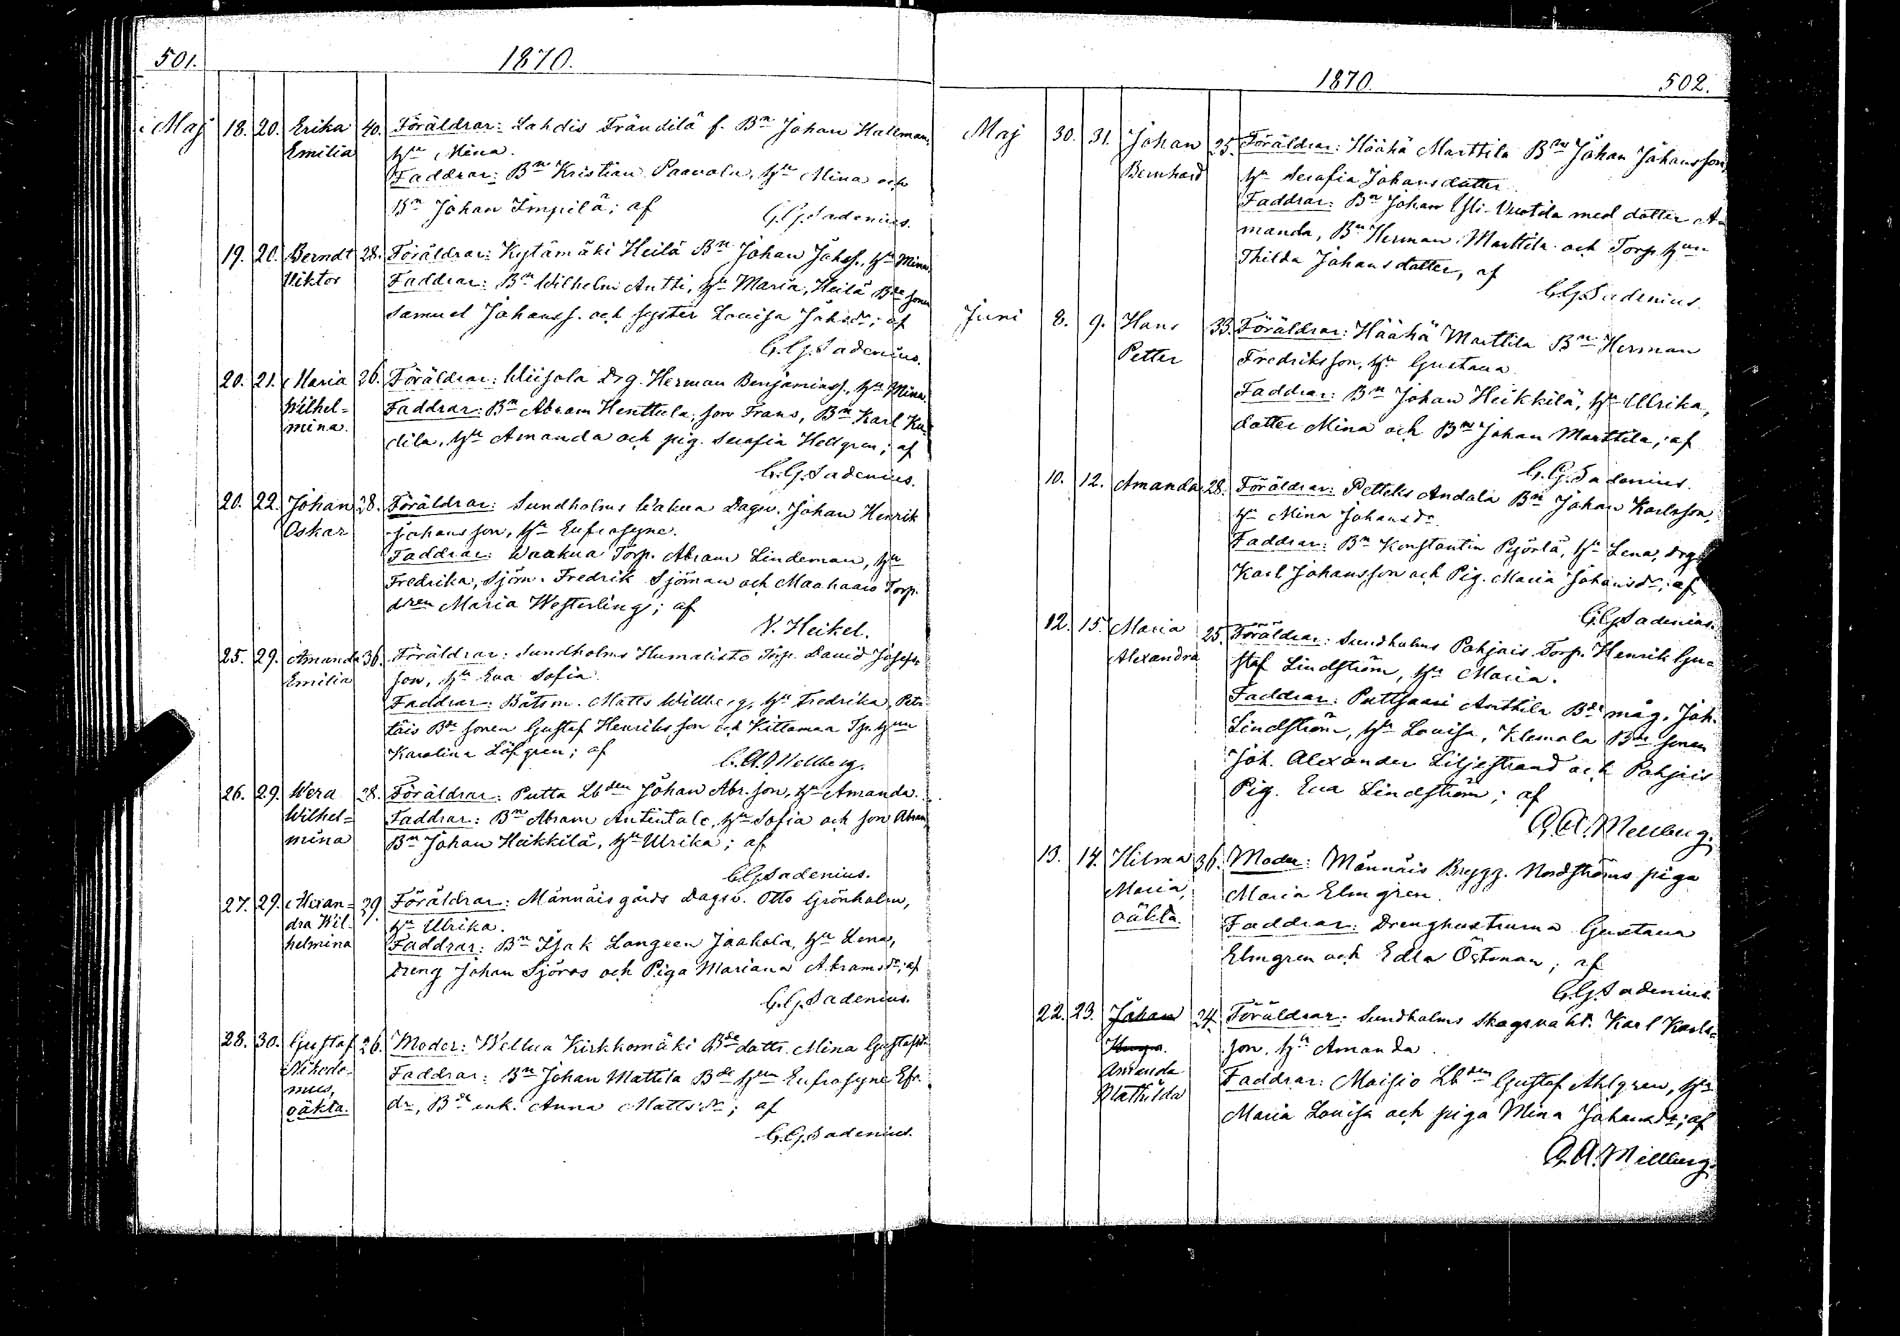 501.
1870.
Maj 18. 20. Erika 40. Föräldrar: Lahdis Fränditä f. Bn Johan Halleman,
Emilia Hu Mina.
Faddrar: Bn Kristian Paavola, Hu Mina och
Bn Johan Impilä; af
G. G. Sadenius.
19. 20. Berndt 28. Föräldrar: Kytämäki Heilä Bn Johan Johss., Hu Mina.
Viktor Faddrar: Bn Wilhelm Antti, Hu Maria, Heilä Bde sonen
Samuel Johanss. och syster Lovisa Johsdr; af
G. G. Sadenius.
20. 21. Maria 26. Föräldrar: Wiisola Drg. Herman Benjaminss., Hu Mina.
Wilhel= Faddrar: Bn Abram Henttula, son Frans, Bn Karl Ku=
mina. dila, Hu Amanda och pig. Serafia Hellgren; af
G. G. Sadenius.
20. 22. Johan 28. Föräldrar: Sundholms Wakua Dagsv. Johan Henrik
Oskar Johansson, Hu Eufrosyne.
Faddrar: Waakua Torp. Abram Lindeman, Hu
Fredrika, Sjöm. Fredrik Sjöman och Maahaais Torp.
dren Maria Westerling; af
V. Heikel.
25. 29. Amanda 36. Föräldrar: Sundholms Humalisto Torp. David Josefs
Emilia son, Hu Eva Sofia
Faddrar: Båtsm. Matts Willberg, Hu Fredrika, Pet
täis Bde sonen Gustaf Henriksson och Kittamaa Tp. Hun
Karolina Löfgren; af
G. A. Mellberg.
26. 29. Wera 28. Föräldrar: Putta Lbden Johan Abr.son, Hu Amanda.
Wilhel= Faddrar: Bn Abram Antintalo, Hu Sofia och son Abram,
mina Bn Johan Heikkilä, Hu Ulrika; af
G. G. Sadenius.
27. 29. Alexan= 39. Föräldrar: Männäis gårds Dagsv. Otto Grönholm,
dra Wil- Hu Ulrika.
helmina Faddrar: Bn Isak Langeen Jaakola, Hu Lena,
Dreng Johan Sjöros och Piga Mariana Abramsdr; af
G. G. Sadenius.
28. 30. Gustaf 26. Moder: Wellua Kirkkomäki Bde dottr. Mina Gustafsdr
Nikode- Faddrar: Bn Johan Mattila Bde Hun Eufrosyne Efr.
mus, dr, Bde enk. Anna Mattsdr; af
oäkta.
G. G. Sadenius.
1870.
502.
Maj 30. 31. Johan 25. Föräldrar: Häähä Marttila Bn Johan Johansson,
Bernhard Hu Serafia Johansdotter.
Faddrar: Bn Johan Yli-Vuotila med dotter A-
manda, Bn Herman Marttila och Torp. Hun
Thilda Johansdotter, af
G. G. Sadenius.
Juni 8. 9. Hans 33. Föräldrar: Häähä Marttila Bn Herman
Petter Fredriksson, Hu Gustava.
Faddrar: Bn Johan Heikkilä, Hu Ulrika,
dotter Mina och Bn Johan Marttila; af
G. G. Sadenius.
10. 12. Amanda 28. Föräldrar: Petteks Andala Bn Johan Karlsson,
Hu Mina Johansdr.
Faddrar: Bn Konstantin Pyörlä, Hu Lena, Drg
Karl Johansson och Pig. Maria Johansdr; af
G. G. Sadenius.
12. 15. Maria 25. Föräldrar: Sundholms Pohjais Torp. Henrik Gu-
Alexandra staf Lindström, Hu Maria.
Faddrar: Puttsaari Anttila Bde måg. Joh.
Lindström, Hu Lovisa, Klemola Bde sonen
Joh. Alexander Liljestrand och Pohjais
Pig. Eva Lindström; af
G. A. Mellberg.
13. 14. Hilma 36. Moder: Männäis Brygg. Nordströms piga
Maria, Maria Elmgren.
oäkta. Faddrar: Drenghustrurna Gustava
Elmgren och Edla Östman; af
G. G. Sadenius.
22. 23. Johan 24. Föräldrar: Sundholms Skogsvakt. Karl Karls=
Hugo. son, Hu Amanda.
Amanda Faddrar: Maisio Lbden Gustaf Ahlgren, Hu
Mathilda Maria Lovisa och piga Mina Johansdr; af
G. A. Mellberg.